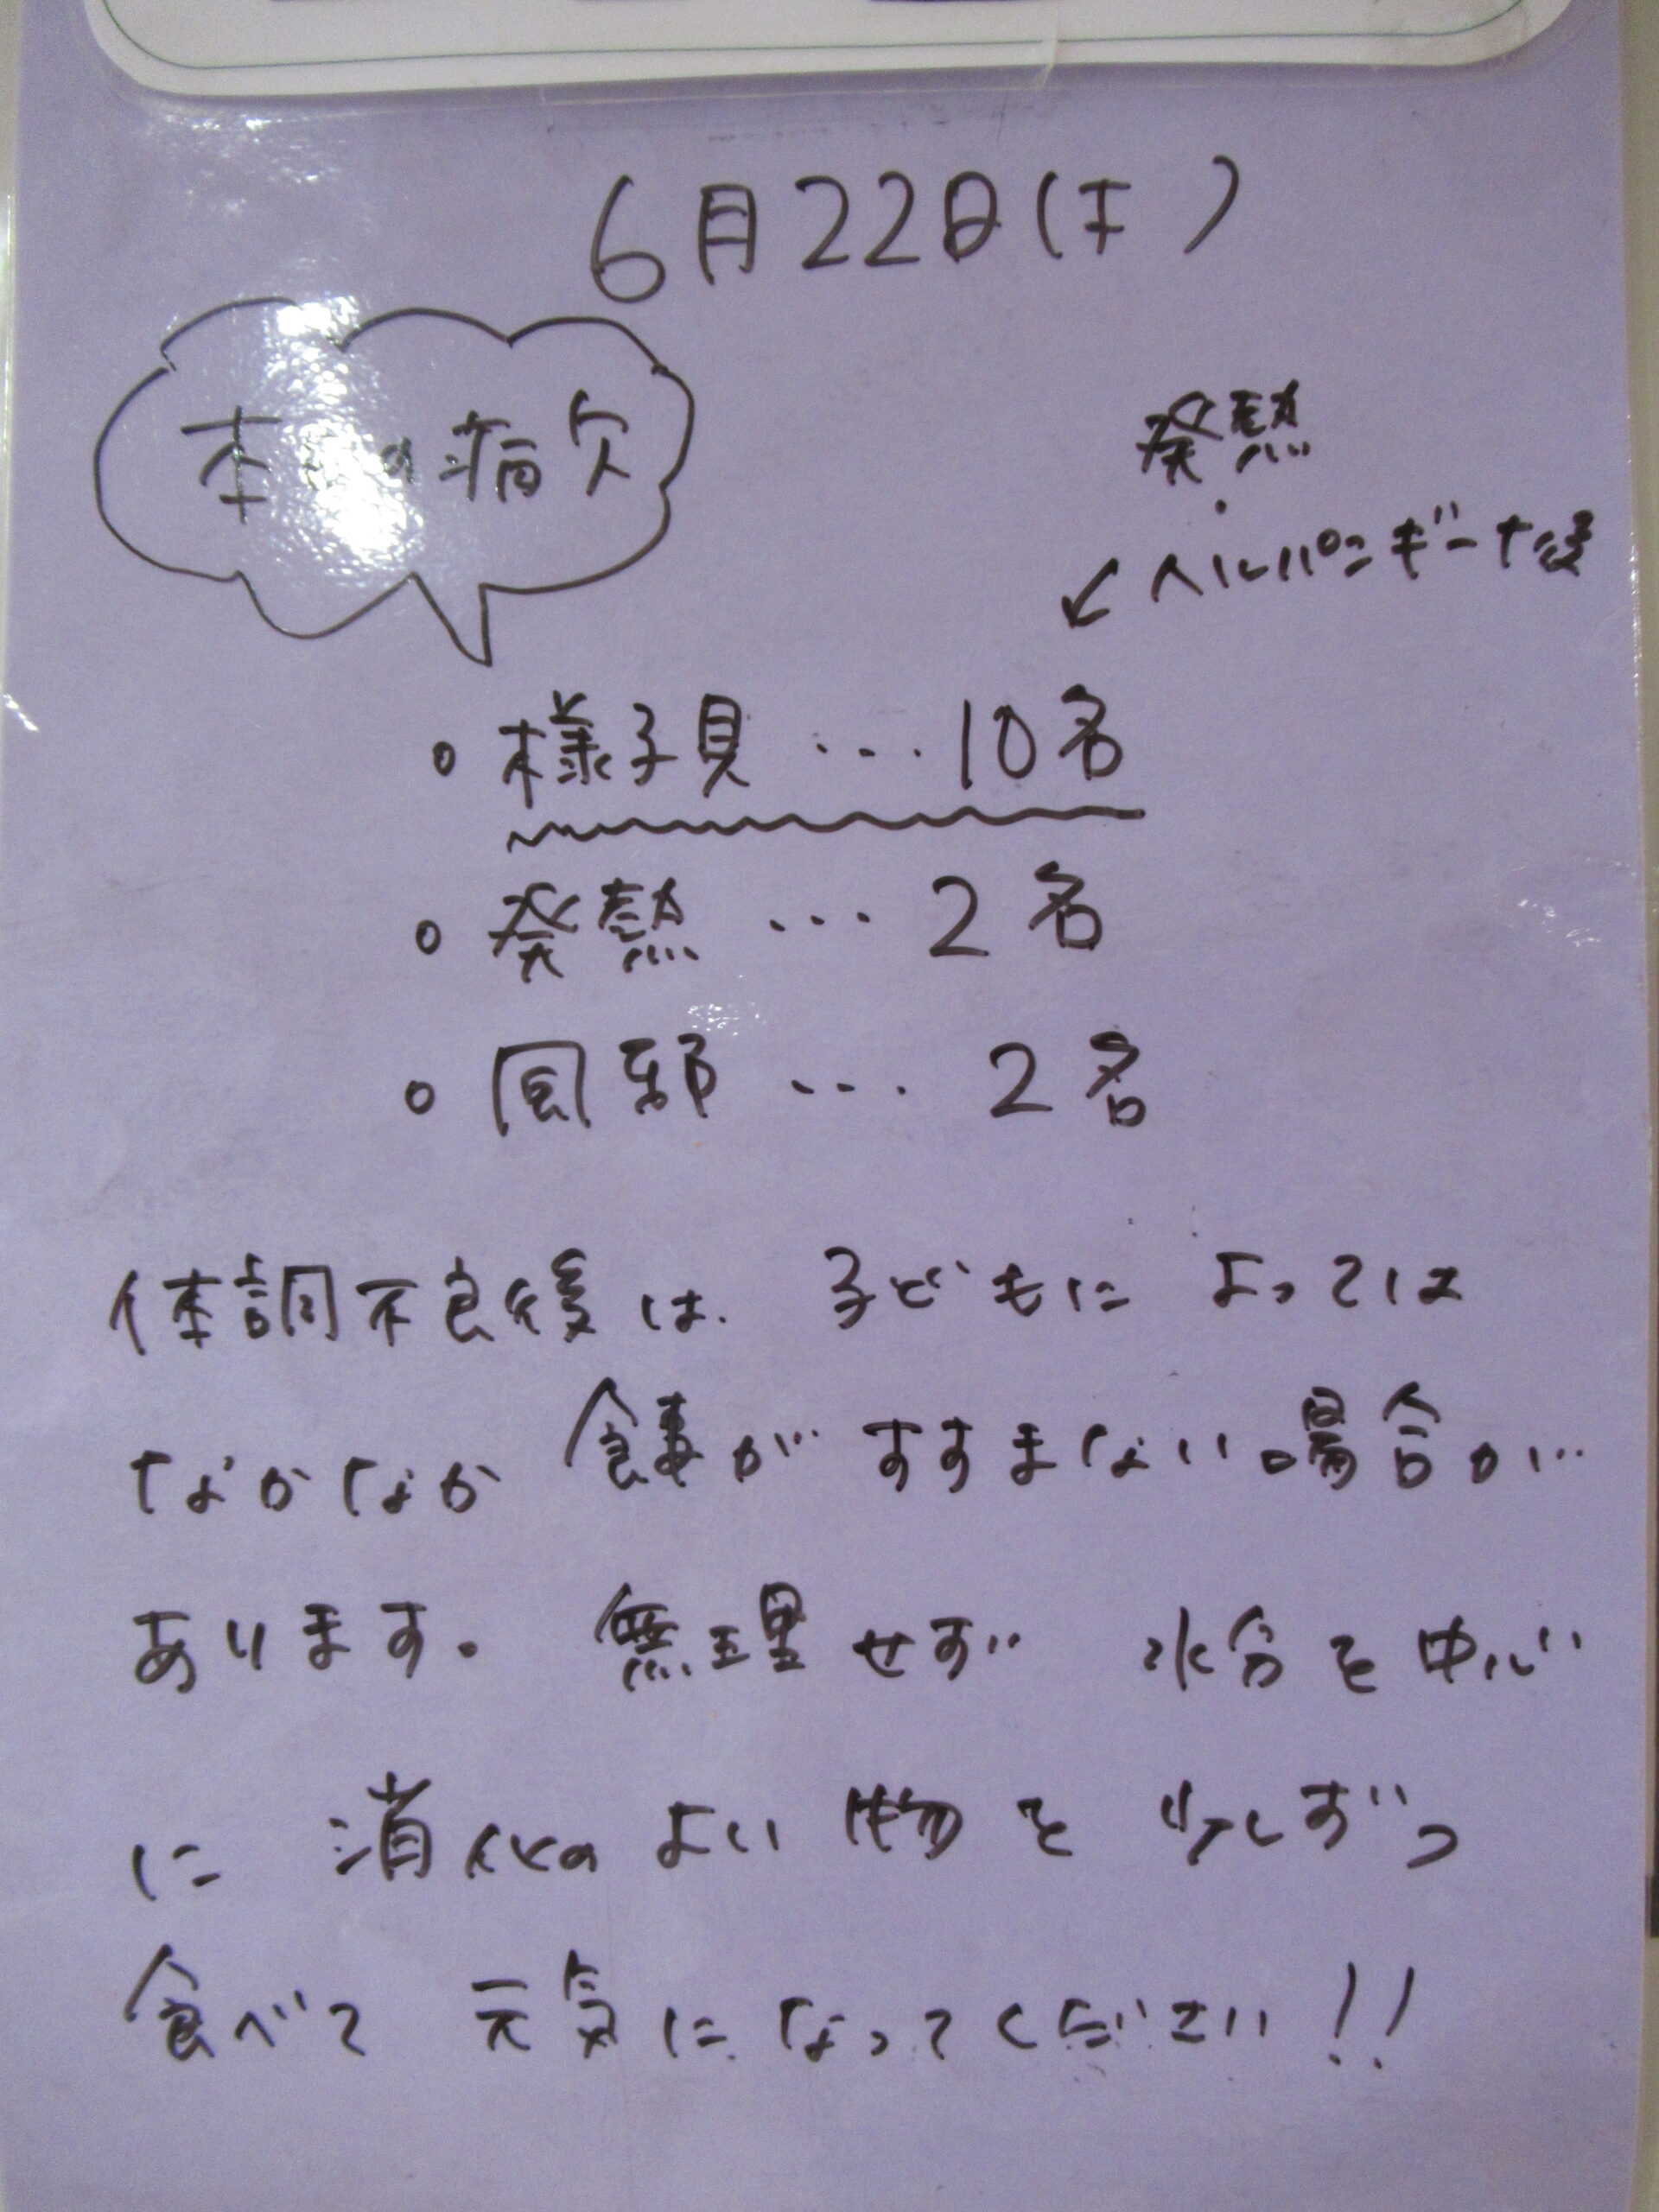 6月22日(木)
本日の病欠
発熱
・
↙ヘルパンギーナ後
○様子見…10名
○発熱…2名
○風邪…2名
体調不良後は、子どもによっては
なかなか食事がすすまない場合が
あります。無理せず 水分を中心
に 消化のよい物を少しずつ
食べて 元気になってください!!